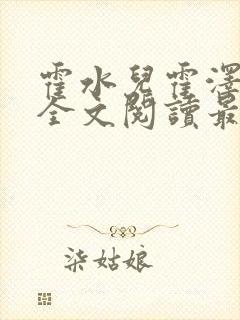 霍水兒霍澤
全文閱讀最
柒姑娘